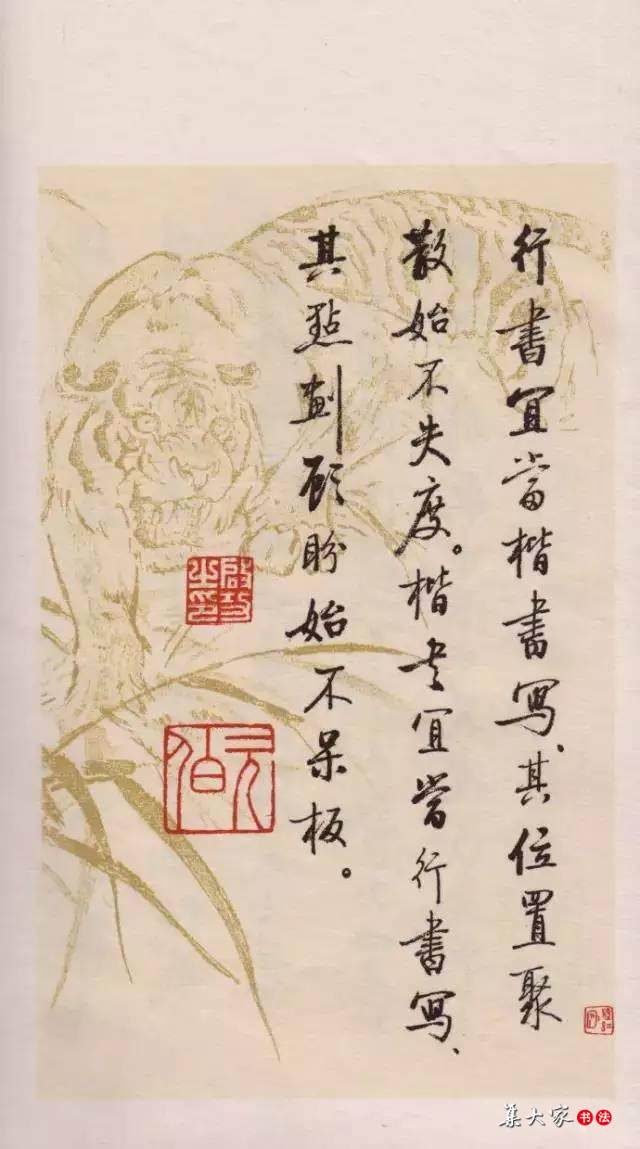 行書宜當楷書寫、其位置聚
散始不失度。楷书宜當行書寫、
其點劃顧盼始不呆板。
啟功之印
元伯
集大家书法